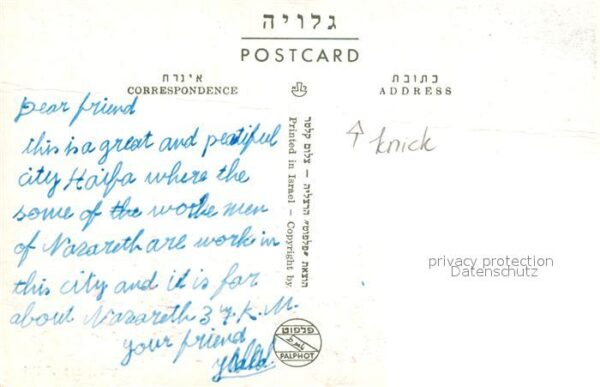 גלויה
POSTCARD
אינרת
CORRESPONDENCE
כתובת
ADDRESS
Dear friend
this is a great and peatiful
city Haifa where the
some of the worke men
of Nazareth are work in
this city and it is far
about Nazareth 37. K.M.
your friend
הוצאת "פלפוט" הרצליה – צלום קלטר
Printed in Israel – Copyright by
knick
privacy protection
Datenschutz
פלפוט
PALPHOT